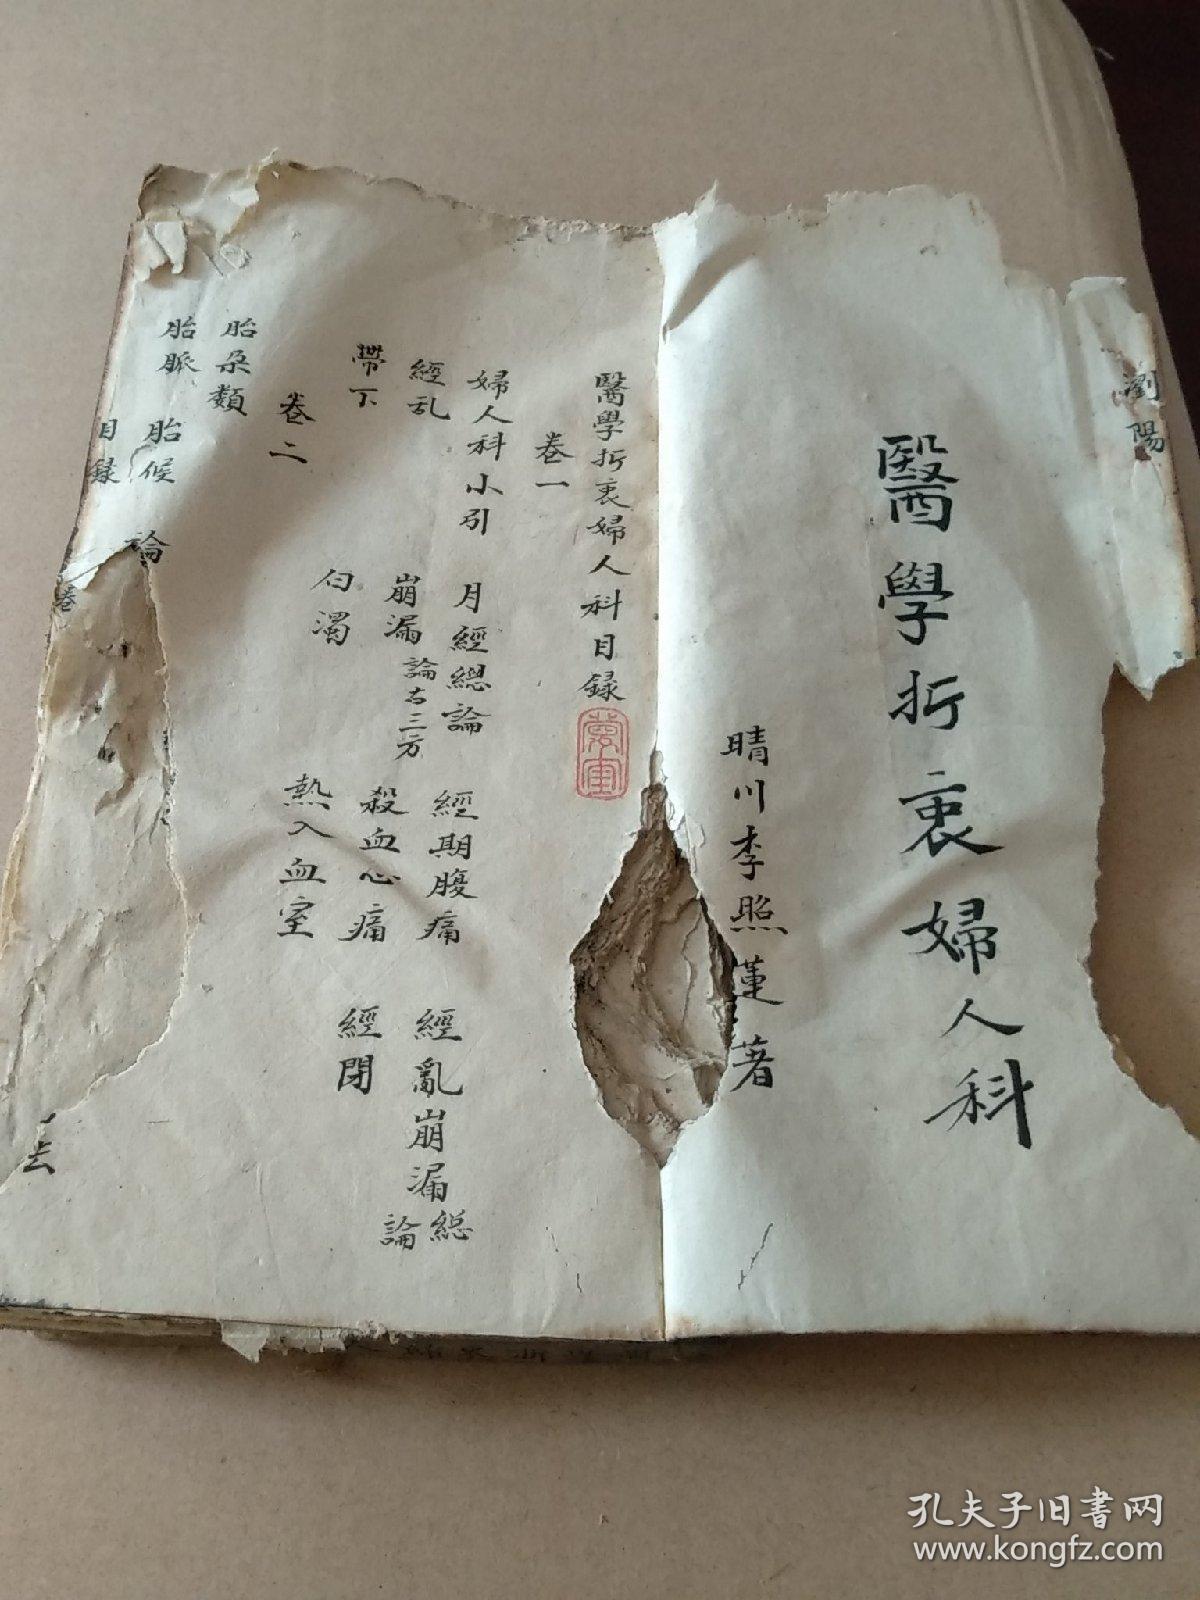 瀏陽
醫學折衷婦人科
晴川李照蓮著
醫學折衷婦人科目録
卷一
婦人科小引 月經總論 經期腹痛 經亂崩漏総論
經乱 崩漏論古三方 殺血心痛 經閉
帶下 白濁 熱入血室
卷二
胎朶類
胎脈 胎候 論
目録 卷
去
孔夫子旧书网
www.kongfz.com